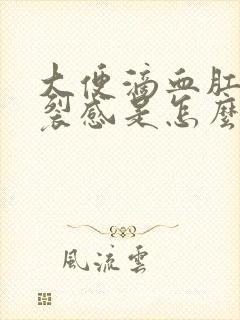 大便滴血肛
裂感是怎麼
風流雲